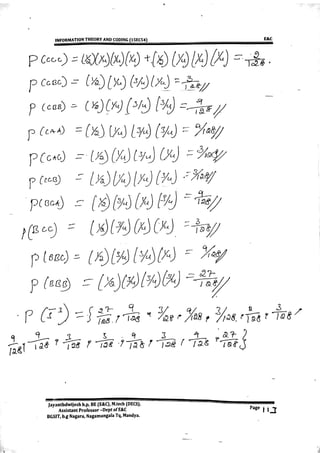 INFORMATION THEORY AND CODING (15EC54) E&C
P(ccc) = (½)(¼)(¼)(¼) + (½)(¼)(¼)(¼) = 2/128.
P(CBC) = (½)(¼)(3/4)(¼) = 3/128//
P(CBB) = (½)(¼)(3/4)(3/4) = 9/128//
P(CAA) = (½)(¼)(3/4)(3/4) = 9/128//
P(CAC) = (½)(¼)(3/4)(¼) = 3/128//
P(CCB) = (½)(¼)(¼)(3/4) = 3/128//
P(BCA) = (½)(3/4)(¼)(3/4) = 9/128//
P(BCC) = (½)(3/4)(¼)(¼) = 3/128//
P(BBC) = (½)(3/4)(3/4)(¼) = 9/128//
P(BBB) = (½)(3/4)(3/4)(3/4) = 27/128//
P(S³) = { 27/128, 9/128, 3/128, 9/128, 3/128, 2/128, 3/128,
9/128, 9/128, 3/128, 3/128, 9/128, 3/128, 9/128, 27/128 }
Jayanthdwijesh h.p, BE (E&C), M.tech (DECS).
Assistant Professor –Dept of E&C
BGSIT, b.g Nagara, Nagamangala Tq, Mandya.
Page 113